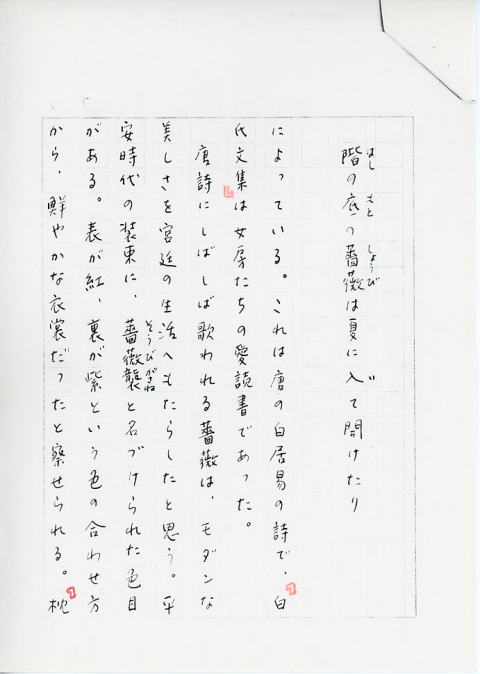 階の底の薔薇は夏に入て開けたり
はし もと しょうび いり
によっている。これは唐の白居易の詩で、白
氏文集は女房たちの愛読書であった。
唐詩にしばしば歌われる薔薇は、モダンな
美しさを宮廷の生活へもたらしたと思う。平
安時代の装束に、薔薇襲と名づけられた色目
そうび がさね
がある。表が紅、裏が紫という色の合わせ方
から、鮮やかな衣裳だったと察せられる。枕